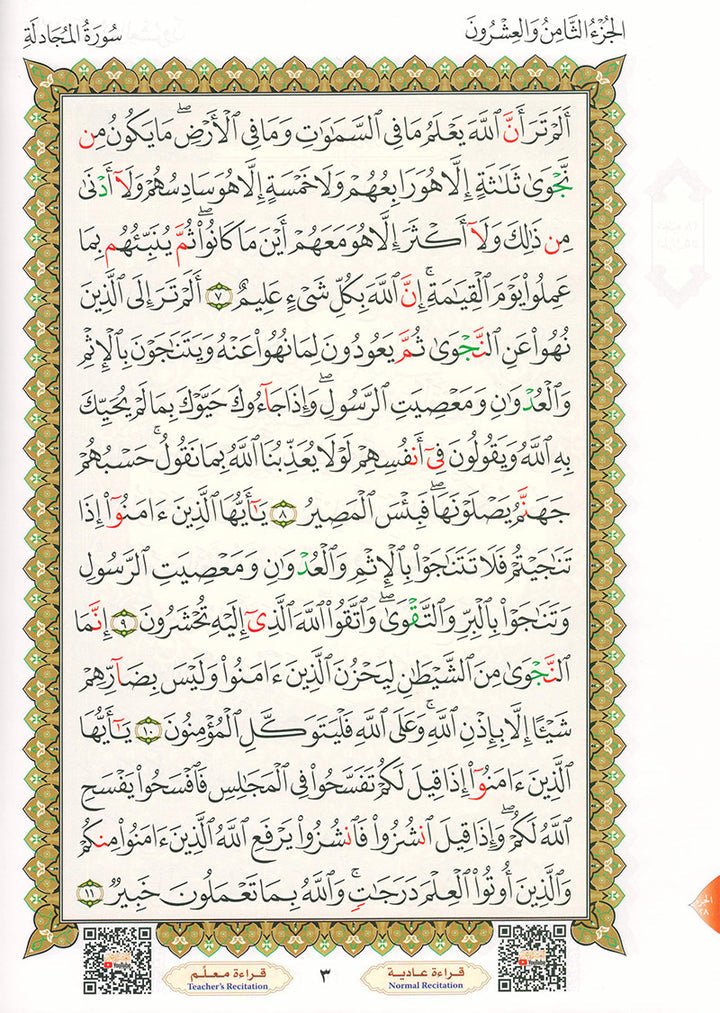 الجُزْءُ الثَّامِنُ وَالعِشْرُونَ
سُورَةُ المُجَادلَةِ
أَلَمْ تَرَ أَنَّ ٱللَّهَ يَعْلَمُ مَا فِى ٱلسَّمَٰوَٰتِ وَمَا فِى ٱلْأَرْضِ ۖ مَا يَكُونُ مِن
نَّجْوَىٰ ثَلَٰثَةٍ إِلَّا هُوَ رَابِعُهُمْ وَلَا خَمْسَةٍ إِلَّا هُوَ سَادِسُهُمْ وَلَآ أَدْنَىٰ
مِن ذَٰلِكَ وَلَآ أَكْثَرَ إِلَّا هُوَ مَعَهُمْ أَيْنَ مَا كَانُوا۟ ۖ ثُمَّ يُنَبِّئُهُم بِمَا
عَمِلُوا۟ يَوْمَ ٱلْقِيَٰمَةِ ۚ إِنَّ ٱللَّهَ بِكُلِّ شَىْءٍ عَلِيمٌ ٧ أَلَمْ تَرَ إِلَى ٱلَّذِينَ
نُهُوا۟ عَنِ ٱلنَّجْوَىٰ ثُمَّ يَعُودُونَ لِمَا نُهُوا۟ عَنْهُ وَيَتَنَٰجَوْنَ بِٱلْإِثْمِ
وَٱلْعُدْوَٰنِ وَمَعْصِيَتِ ٱلرَّسُولِ ۖ وَإِذَا جَآءُوكَ حَيَّوْكَ بِمَا لَمْ يُحَيِّكَ
بِهِ ٱللَّهُ وَيَقُولُونَ فِىٓ أَنفُسِهِمْ لَوْلَا يُعَذِّبُنَا ٱللَّهُ بِمَا نَقُولُ ۚ حَسْبُهُمْ
جَهَنَّمُ يَصْلَوْنَهَا ۖ فَبِئْسَ ٱلْمَصِيرُ ٨ يَٰٓأَيُّهَا ٱلَّذِينَ ءَامَنُوٓا۟ إِذَا
تَنَٰجَيْتُمْ فَلَا تَتَنَٰجَوْا۟ بِٱلْإِثْمِ وَٱلْعُدْوَٰنِ وَمَعْصِيَتِ ٱلرَّسُولِ
وَتَنَٰجَوْا۟ بِٱلْبِرِّ وَٱلتَّقْوَىٰ ۖ وَٱتَّقُوا۟ ٱللَّهَ ٱلَّذِىٓ إِلَيْهِ تُحْشَرُونَ ٩ إِنَّمَا
ٱلنَّجْوَىٰ مِنَ ٱلشَّيْطَٰنِ لِيَحْزُنَ ٱلَّذِينَ ءَامَنُوا۟ وَلَيْسَ بِضَآرِّهِمْ
شَيْـًٔا إِلَّا بِإِذْنِ ٱللَّهِ ۚ وَعَلَى ٱللَّهِ فَلْيَتَوَكَّلِ ٱلْمُؤْمِنُونَ ١٠ يَٰٓأَيُّهَا
ٱلَّذِينَ ءَامَنُوٓا۟ إِذَا قِيلَ لَكُمْ تَفَسَّحُوا۟ فِى ٱلْمَجَٰلِسِ فَٱفْسَحُوا۟ يَفْسَحِ
ٱللَّهُ لَكُمْ ۖ وَإِذَا قِيلَ ٱنشُزُوا۟ فَٱنشُزُوا۟ يَرْفَعِ ٱللَّهُ ٱلَّذِينَ ءَامَنُوا۟ مِنكُمْ
وَٱلَّذِينَ أُوتُوا۟ ٱلْعِلْمَ دَرَجَٰتٍ ۚ وَٱللَّهُ بِمَا تَعْمَلُونَ خَبِيرٌ ١١
الجزء
٢٨
YouTube
قراءة عادية
Normal Recitation
٣
قراءة معلّم
Teacher's Recitation
YouTube